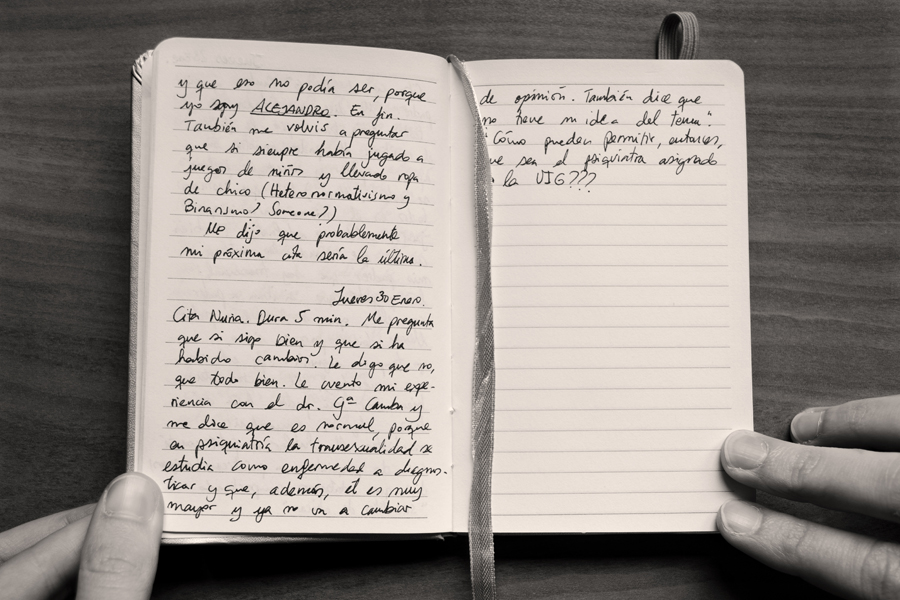 y que eso no podía ser, porque
yo soy ALEJANDRO. En fin.
También me volvis a preguntar
que si siempre había jugado a
juegos de niños y llevado ropa
de chico (Heteronormativismo y
Binarismo? Someone?)
Me dijo que probablemente
mi próxima cita sería la última.
Jueves 30 Enero.
Cita Nuria. Dura 5 min. Me pregunta
que si sigo bien y que si ha
habido cambios. Le digo que no,
que todo bien. Le cuento mi expe-
riencia con el dr. Gª Camba y
me dice que es normal, porque
en psiquiatría la transexualidad se
estudia como enfermedad a diagnos-
ticar y que, además, él es muy
mayor y ya no va a cambiar
de opinión. También dice que
no tiene ni idea del tema".
Cómo pueden permitir, entonces,
que sea el psiquiatra asignado
la UIG???